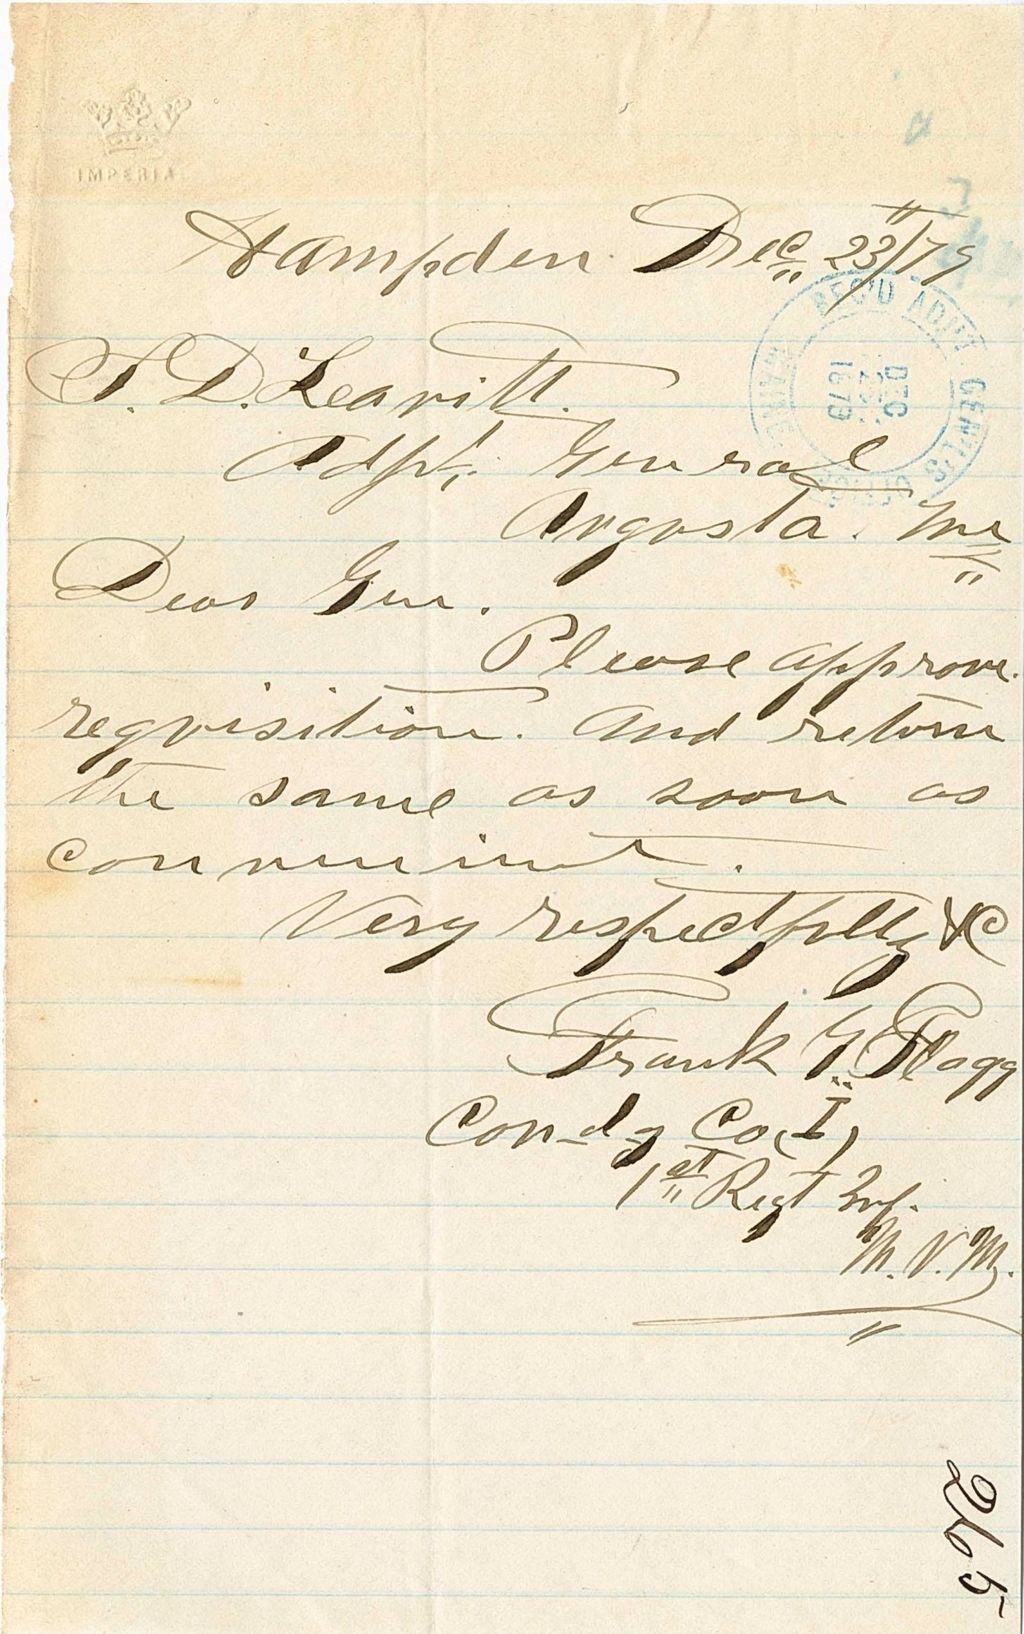 IMPERIAL
Hampden Dec 23/79
REC'D ADJ'T GEN'L'S OFFICE MAINE
DEC
1879
S. D. Leavitt.
Adjt. General
Augusta. Me
Dear Gen.
Please approve.
requisition. and return
the same as soon as
convenient.
Very respectfully &C
Frank G. Flagg
Comdg Co, I,
1st Regt Inf.
M. V. M.
265